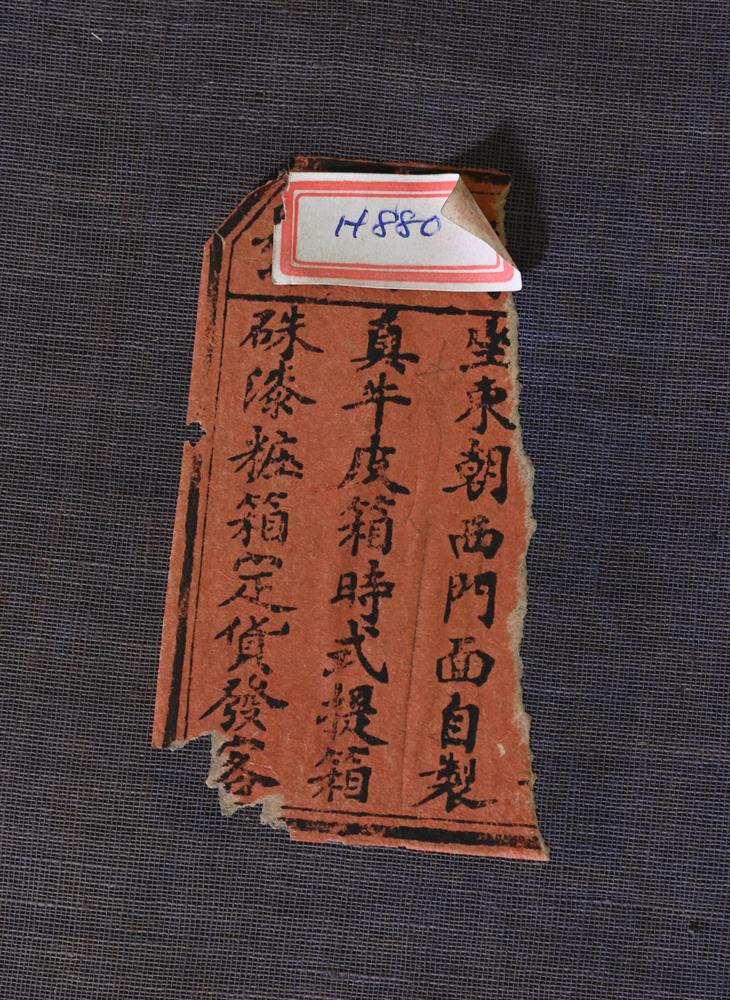 H880
坐東朝西門面自製
真牛皮箱時式提箱
硃漆粧箱定貨發客